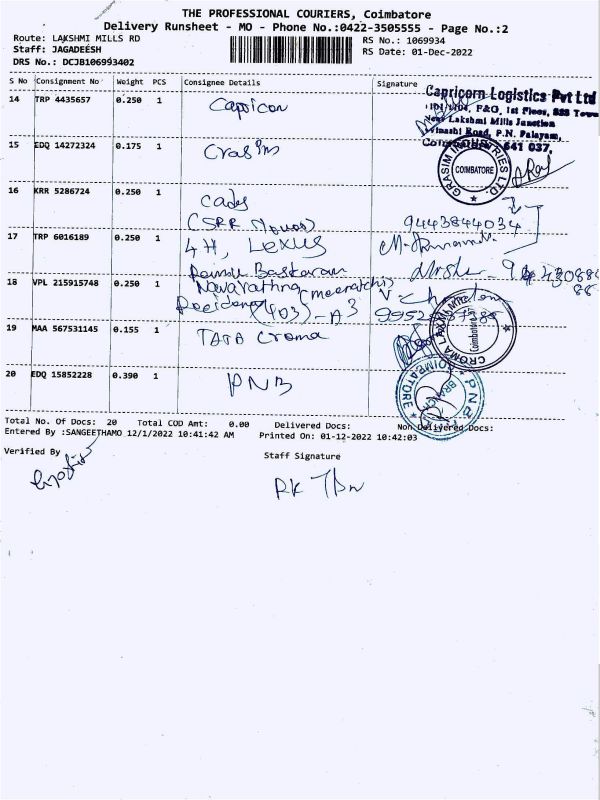 THE PROFESSIONAL COURIERS, Coimbatore
Delivery Runsheet - MO - Phone No.:0422-3505555 - Page No.:2
Route: LAKSHMI MILLS RD
Staff: JAGADEESH
DRS No.: DCJB106993402
RS No.: 1069934
RS Date: 01-Dec-2022
S No Consignment No Weight PCS Consignee Details Signature
14 TRP 4435657 0.250 1 Capricon
Capricorn Logistics Pvt Ltd
F&O, 1st Floor,
Near Lakshmi Mills Junction
Avinashi Road, P.N. Palayam,
Coimbatore 641 037.
15 EDQ 14272324 0.175 1
GRASIM INDUSTRIES LTD
COIMBATORE
16 KRR 5286724 0.250 1 9443844034
17 TRP 6016189 0.250 1 4H, Lexus
18 VPL 215915748 0.250 1 Navarathna (meenatchi)
Residency (403) - A3
19 MAA 567531145 0.155 1 TATA Croma
CROMA
Coimbatore
20 EDQ 15852228 0.390 1 PNB
COIMBATORE P N B BRANCH
Total No. Of Docs: 20 Total COD Amt: 0.00 Delivered Docs: Non Delivered Docs:
Entered By :SANGEETHAMO 12/1/2022 10:41:42 AM Printed On: 01-12-2022 10:42:03
Verified By
Staff Signature